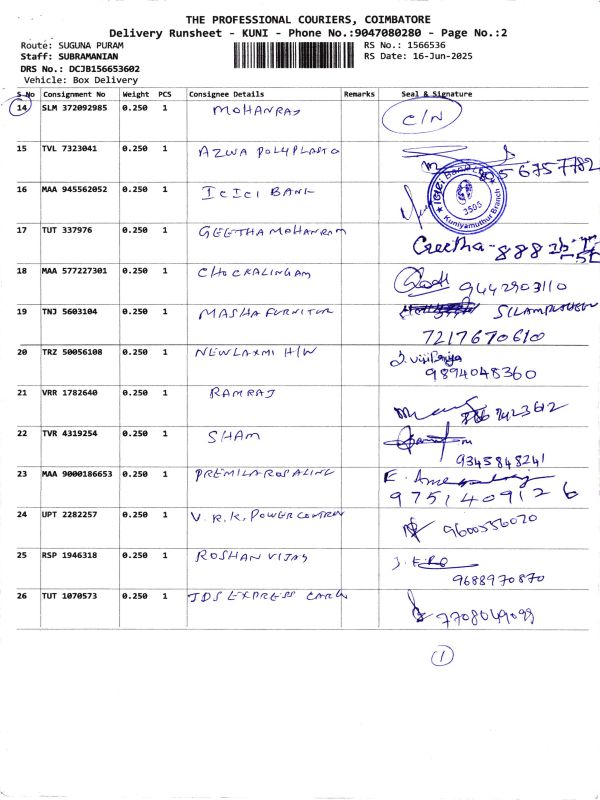 THE PROFESSIONAL COURIERS, COIMBATORE
Delivery Runsheet - KUNI - Phone No.:9047080280 - Page No.:2
Route: SUGUNA PURAM RS No.: 1566536
Staff: SUBRAMANIAN RS Date: 16-Jun-2025
DRS No.: DCJB156653602
Vehicle: Box Delivery
S No Consignment No Weight PCS Consignee Details Remarks Seal & Signature
14 SLM 372092985 0.250 1 MOHANRAJ C/N
15 TVL 7323041 0.250 1 AZWA POLYPLASTO
16 MAA 945562052 0.250 1 ICICI BANK Kuniyamuthur Branch
17 TUT 337976 0.250 1 GEETHA MOHANRAM Geetha
18 MAA 577227301 0.250 1 CHOCKALINGAM 9442903110
19 TNJ 5603104 0.250 1 MASHA FURNITUR
7217670610
20 TRZ 50056108 0.250 1 NEWLAXMI H/W
9894048360
21 VRR 1782640 0.250 1 RAMRAJ
22 TVR 4319254 0.250 1 SHAM
9345848241
23 MAA 9000186653 0.250 1 PREMILAROSALINE
9751409126
24 UPT 2282257 0.250 1 V.R.K. POWERCONTROL 9600556020
25 RSP 1946318 0.250 1 ROSHAN VIJAY
9688970870
26 TUT 1070573 0.250 1 JDS EXPRESS CARGO 7708049099
1